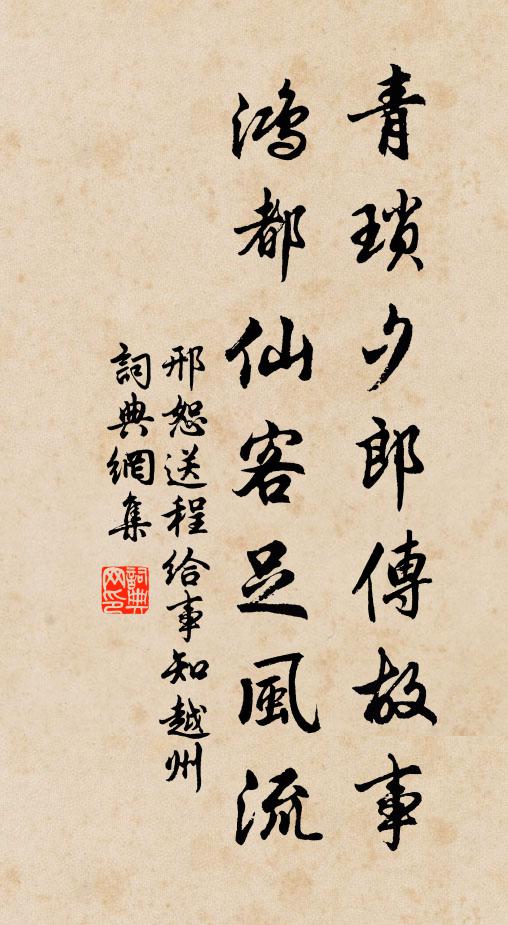 青瑣夕郎傳故事
鴻都仙客足風流
邢恕送程給事知越州
詞典網集
詞典网印